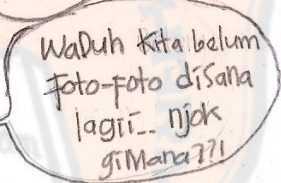 WaDuh Kita belum
Foto-Foto diSana
lagii... njok
giMana??!